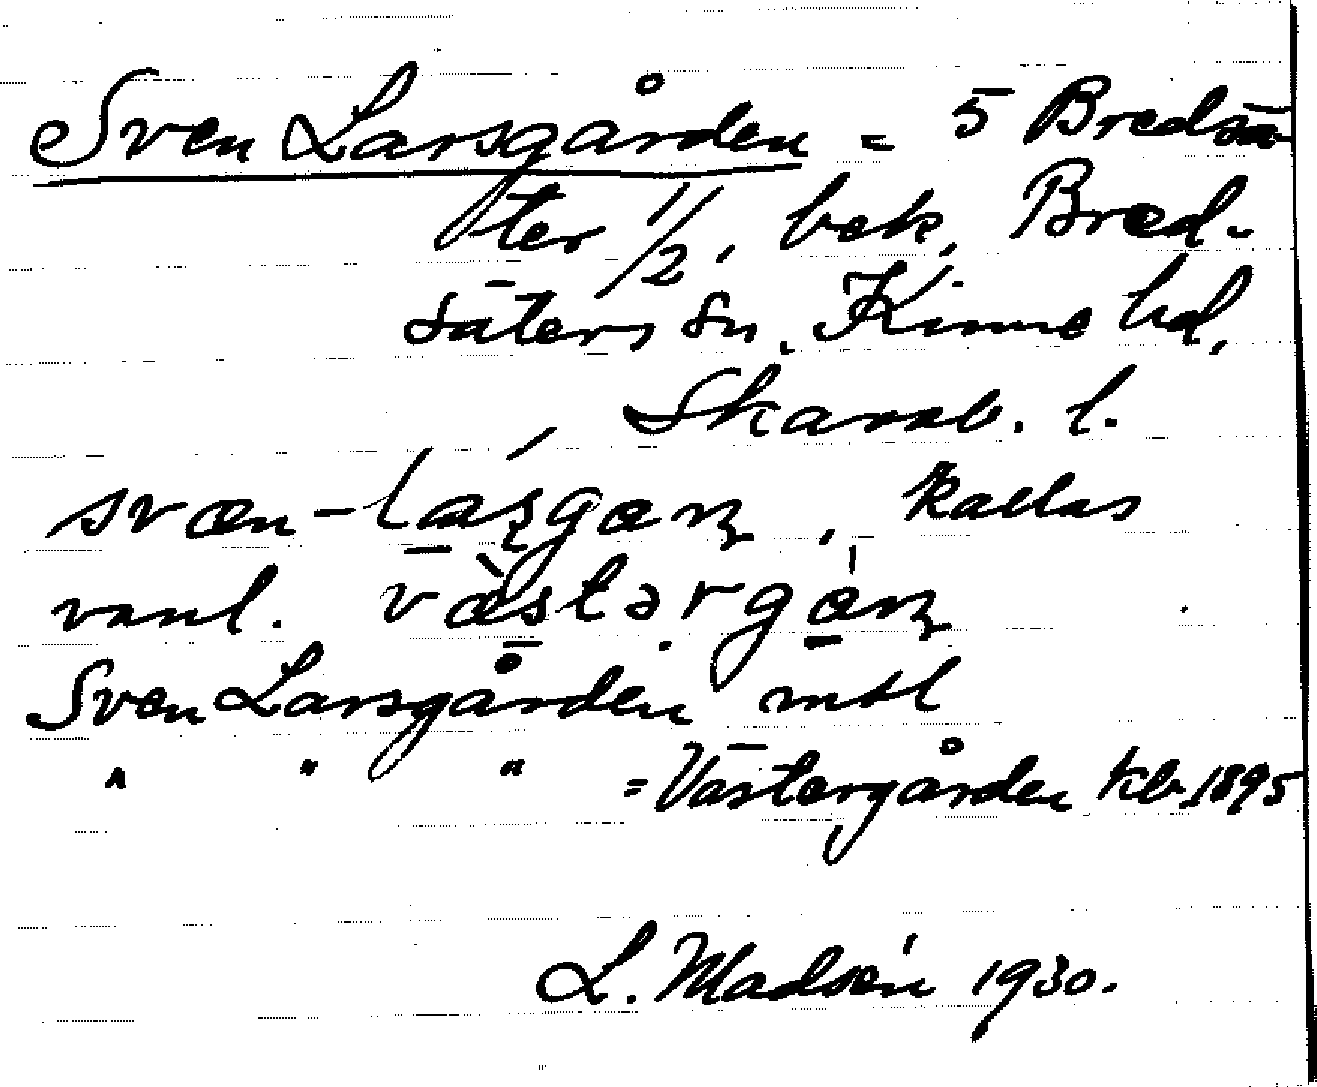 Sven Larsgården = 5 Bredsä-
ter 1/2, bek, Bred-
säters sn. Kinne hd,
Skarab. l.
svæn-laʂgan, kallas
vanl. væstərgan
Sven Larsgården mtl
" " " = Västergården kb. 1895
L. Madsén 1930.